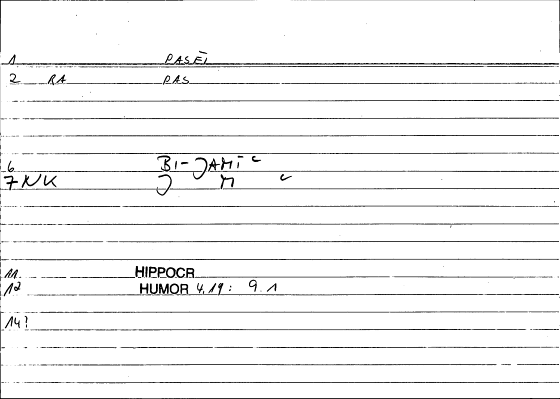 1 PASĒL
2 RA PAS
6 BI-JAMIʿ
7 NK J M ʿ
11. HIPPOCR
12 HUMOR 4,19: 9.1
14?